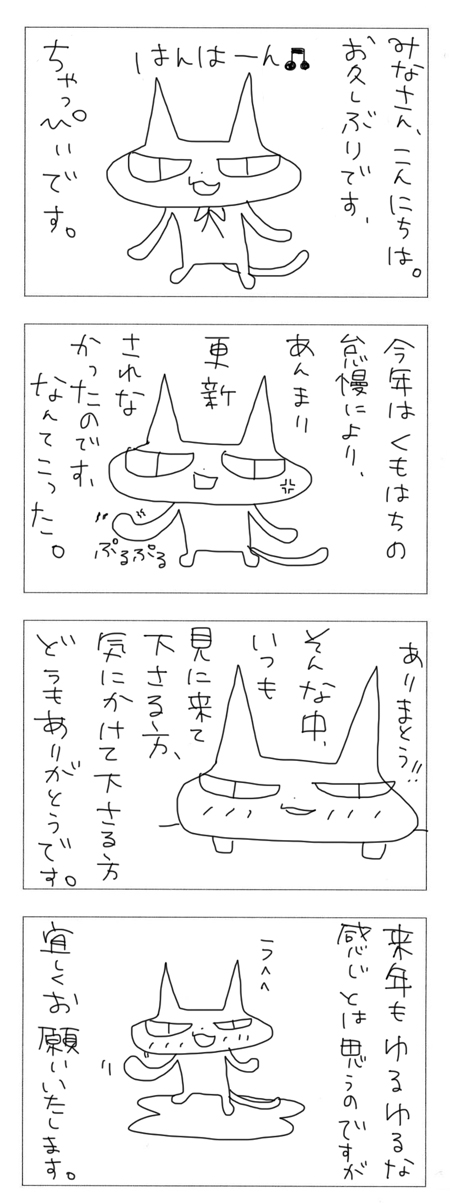 みなさん、こんにちは。
お久しぶりです、
はんはーん♫
ちゃっぴぃです。
今年はくもはちの
怠慢により、
あんまり
更新
されな
かったのです、
なんてこった。
ぷるぷる
ありまとう!!
そんな中、
いつも
見に来て
下さる方、
気にかけて下さる方
どうもありがとうです。
来年もゆるゆるな
感じとは思うのですが
うへへ
宜しくお願いいたします。